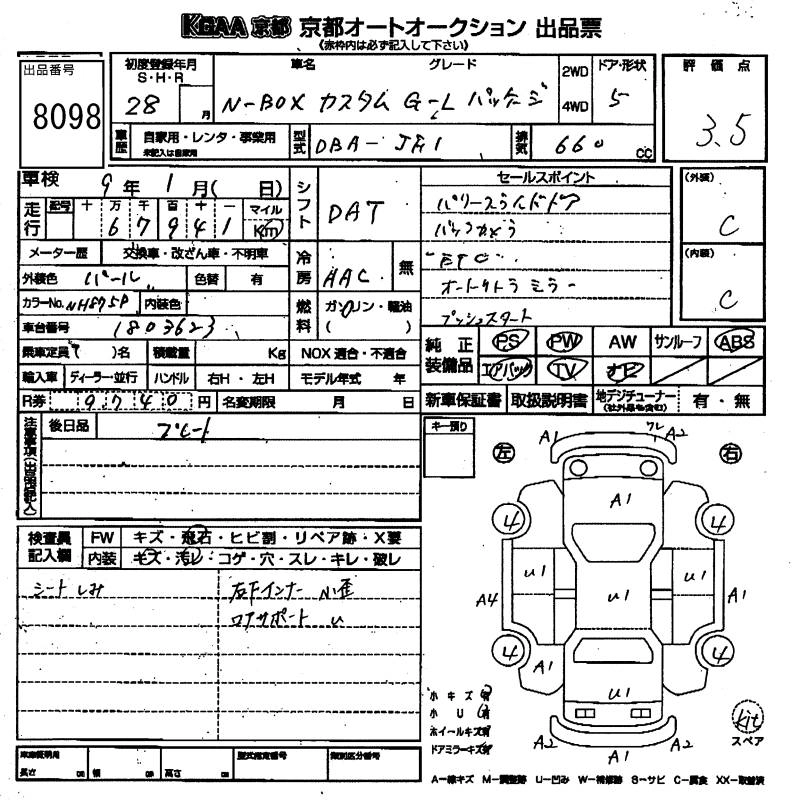 KCAA 京都 京都オートオークション 出品票
(赤枠内は必ず記入して下さい)
出品番号
8098
初度登録年月
S・H・R
28 月
車名 グレード
N-BOX カスタム G-L パッケージ
2WD
4WD
ドア・形状
5
評価点
3.5
車歴
自家用・レンタ・事業用
未記入は自家用
型式
DBA-JF1
排気
660 cc
車検 9年 1月( 日)
走行
記号 十 万 千 百 十 一 マイル
6 7 9 4 1 Km
メーター歴 交換車・改ざん車・不明車
外装色 パール 色替 有
カラーNo. NH875P 内装色
車台番号 1803623
乗車定員( )名 積載量 Kg NOX適合・不適合
輸入車 ディーラー・並行 ハンドル 右H・左H モデル年式 年
R券 9740円 名変期限 月 日
シフト
DAT
冷房
AAC
無
燃料
ガソリン・軽油
( )
セールスポイント
パワースライドドア
バックカメラ
ETC
オートリトラミラー
プッシュスタート
(外装)
C
(内装)
C
純正装備品
PS PW AW サンルーフ ABS
エアバック TV ナビ
新車保証書 取扱説明書 地デジチューナー 有・無
(社外品も含む)
注意事項(出品店記入)
後日品 プレート
キー預り
左
右
検査員記入欄
FW キズ・飛石・ヒビ割・リペア跡・X要
内装 キズ・汚レ・コゲ・穴・スレ・キレ・破レ
シートしみ
左Fインナー 小歪
ロアサポート U
A1 ワレ A2
A1
4 4
U1 U1 U1
A4 A1
4 4
A1
U1
A2 A1 A2
小キズ有
小U有
ホイールキズ有
ドアミラーキズ有
kit
スペア
車庫証明用
長さ cm 幅 cm 高さ cm
型式指定番号
類別区分番号
A-線キズ M-調整跡 U-凹み W-補修跡 S-サビ C-腐食 XX-取替済